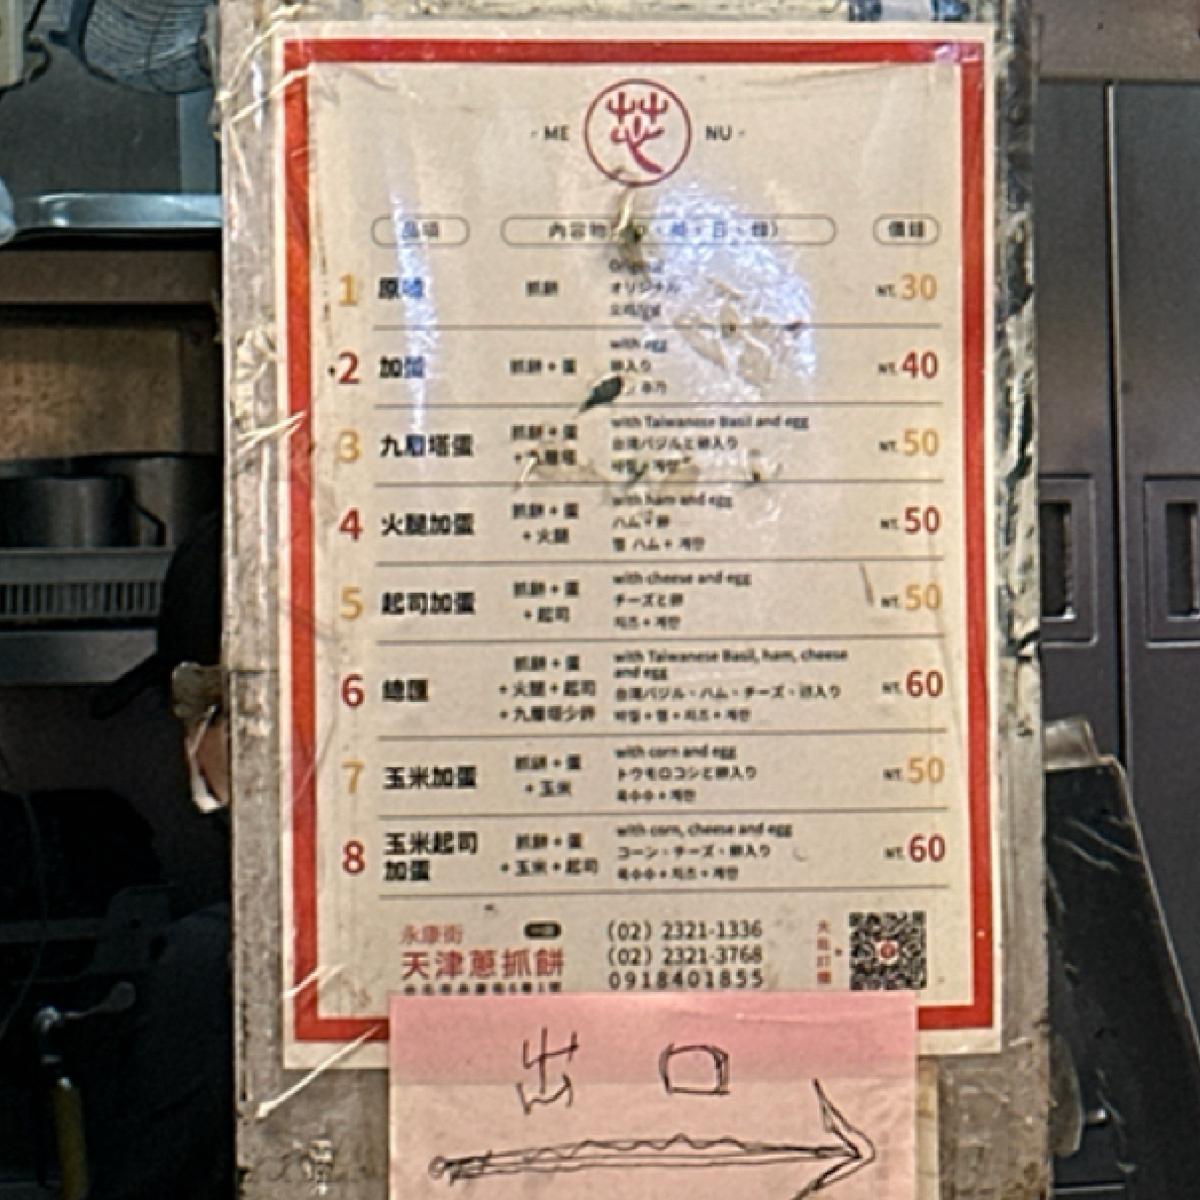 ME NU
品項 內容物 價錢
1 原味 抓餅 Original オリジナル NT.30
2 加蛋 抓餅+蛋 with egg 卵入り NT.40
3 九層塔蛋 抓餅+蛋 with Taiwanese Basil and egg NT.50
+九層塔 台湾バジルと卵入り
바질+계란
4 火腿加蛋 抓餅+蛋 with ham and egg NT.50
+火腿 ハム+卵
햄 ハム+계란
5 起司加蛋 抓餅+蛋 with cheese and egg NT.50
+起司 チーズと卵
치즈+계란
6 總匯 抓餅+蛋 with Taiwanese Basil, ham, cheese and egg NT.60
+火腿+起司 台湾バジル・ハム・チーズ・卵入り
+九層塔少許 바질+햄+치즈+계란
7 玉米加蛋 抓餅+蛋 with corn and egg NT.50
+玉米 トウモロコシと卵入り
옥수수+계란
8 玉米起司加蛋 抓餅+蛋 with corn, cheese and egg NT.60
+玉米+起司 コーン・チーズ・卵入り
옥수수+치즈+계란
永康街 (02) 2321-1336
天津蔥抓餅 (02) 2321-3768
0918401855
出口